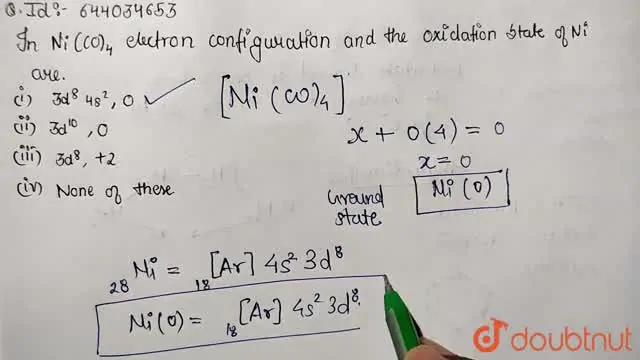 Q.Id:- 644034653
In Ni(CO)4 electron configuration and the oxidation state of Ni
are.
(i) 3d⁸ 4s², 0 ✓
(ii) 3d¹⁰, 0
(iii) 3d⁸, +2
(iv) None of these
[Ni(CO)4]
x + 0(4) = 0
x = 0
Ground state
Ni(0)
28Ni = 18[Ar] 4s² 3d⁸
Ni(0) = 18[Ar] 4s² 3d⁸.
doubtnut